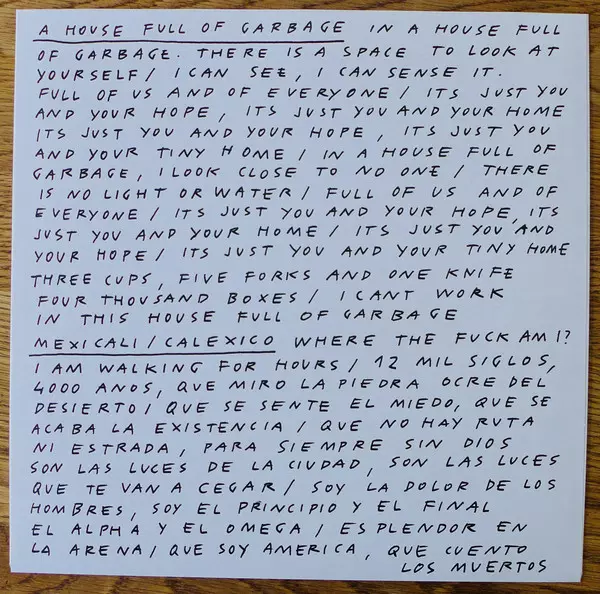 A HOUSE FULL OF GARBAGE IN A HOUSE FULL
OF GARBAGE. THERE IS A SPACE TO LOOK AT
YOURSELF / I CAN SEE, I CAN SENSE IT.
FULL OF US AND OF EVERYONE / ITS JUST YOU
AND YOUR HOPE, ITS JUST YOU AND YOUR HOME
ITS JUST YOU AND YOUR HOPE, ITS JUST YOU
AND YOUR TINY HOME / IN A HOUSE FULL OF
GARBAGE, I LOOK CLOSE TO NO ONE / THERE
IS NO LIGHT OR WATER / FULL OF US AND OF
EVERYONE / ITS JUST YOU AND YOUR HOPE, ITS
JUST YOU AND YOUR HOME / ITS JUST YOU AND
YOUR HOPE / ITS JUST YOU AND YOUR TINY HOME
THREE CUPS, FIVE FORKS AND ONE KNIFE
FOUR THOUSAND BOXES / I CANT WORK
IN THIS HOUSE FULL OF GARBAGE
MEXICALI / CALEXICO WHERE THE FUCK AM I?
I AM WALKING FOR HOURS / 12 MIL SIGLOS,
4000 ANOS, QUE MIRO LA PIEDRA OCRE DEL
DESIERTO / QUE SE SENTE EL MIEDO, QUE SE
ACABA LA EXISTENCIA / QUE NO HAY RUTA
NI ESTRADA, PARA SIEMPRE SIN DIOS
SON LAS LUCES DE LA CIUDAD, SON LAS LUCES
QUE TE VAN A CEGAR / SOY LA DOLOR DE LOS
HOMBRES, SOY EL PRINCIPIO Y EL FINAL
EL ALPHA Y EL OMEGA / ESPLENDOR EN
LA ARENA / QUE SOY AMERICA, QUE CUENTO
LOS MUERTOS